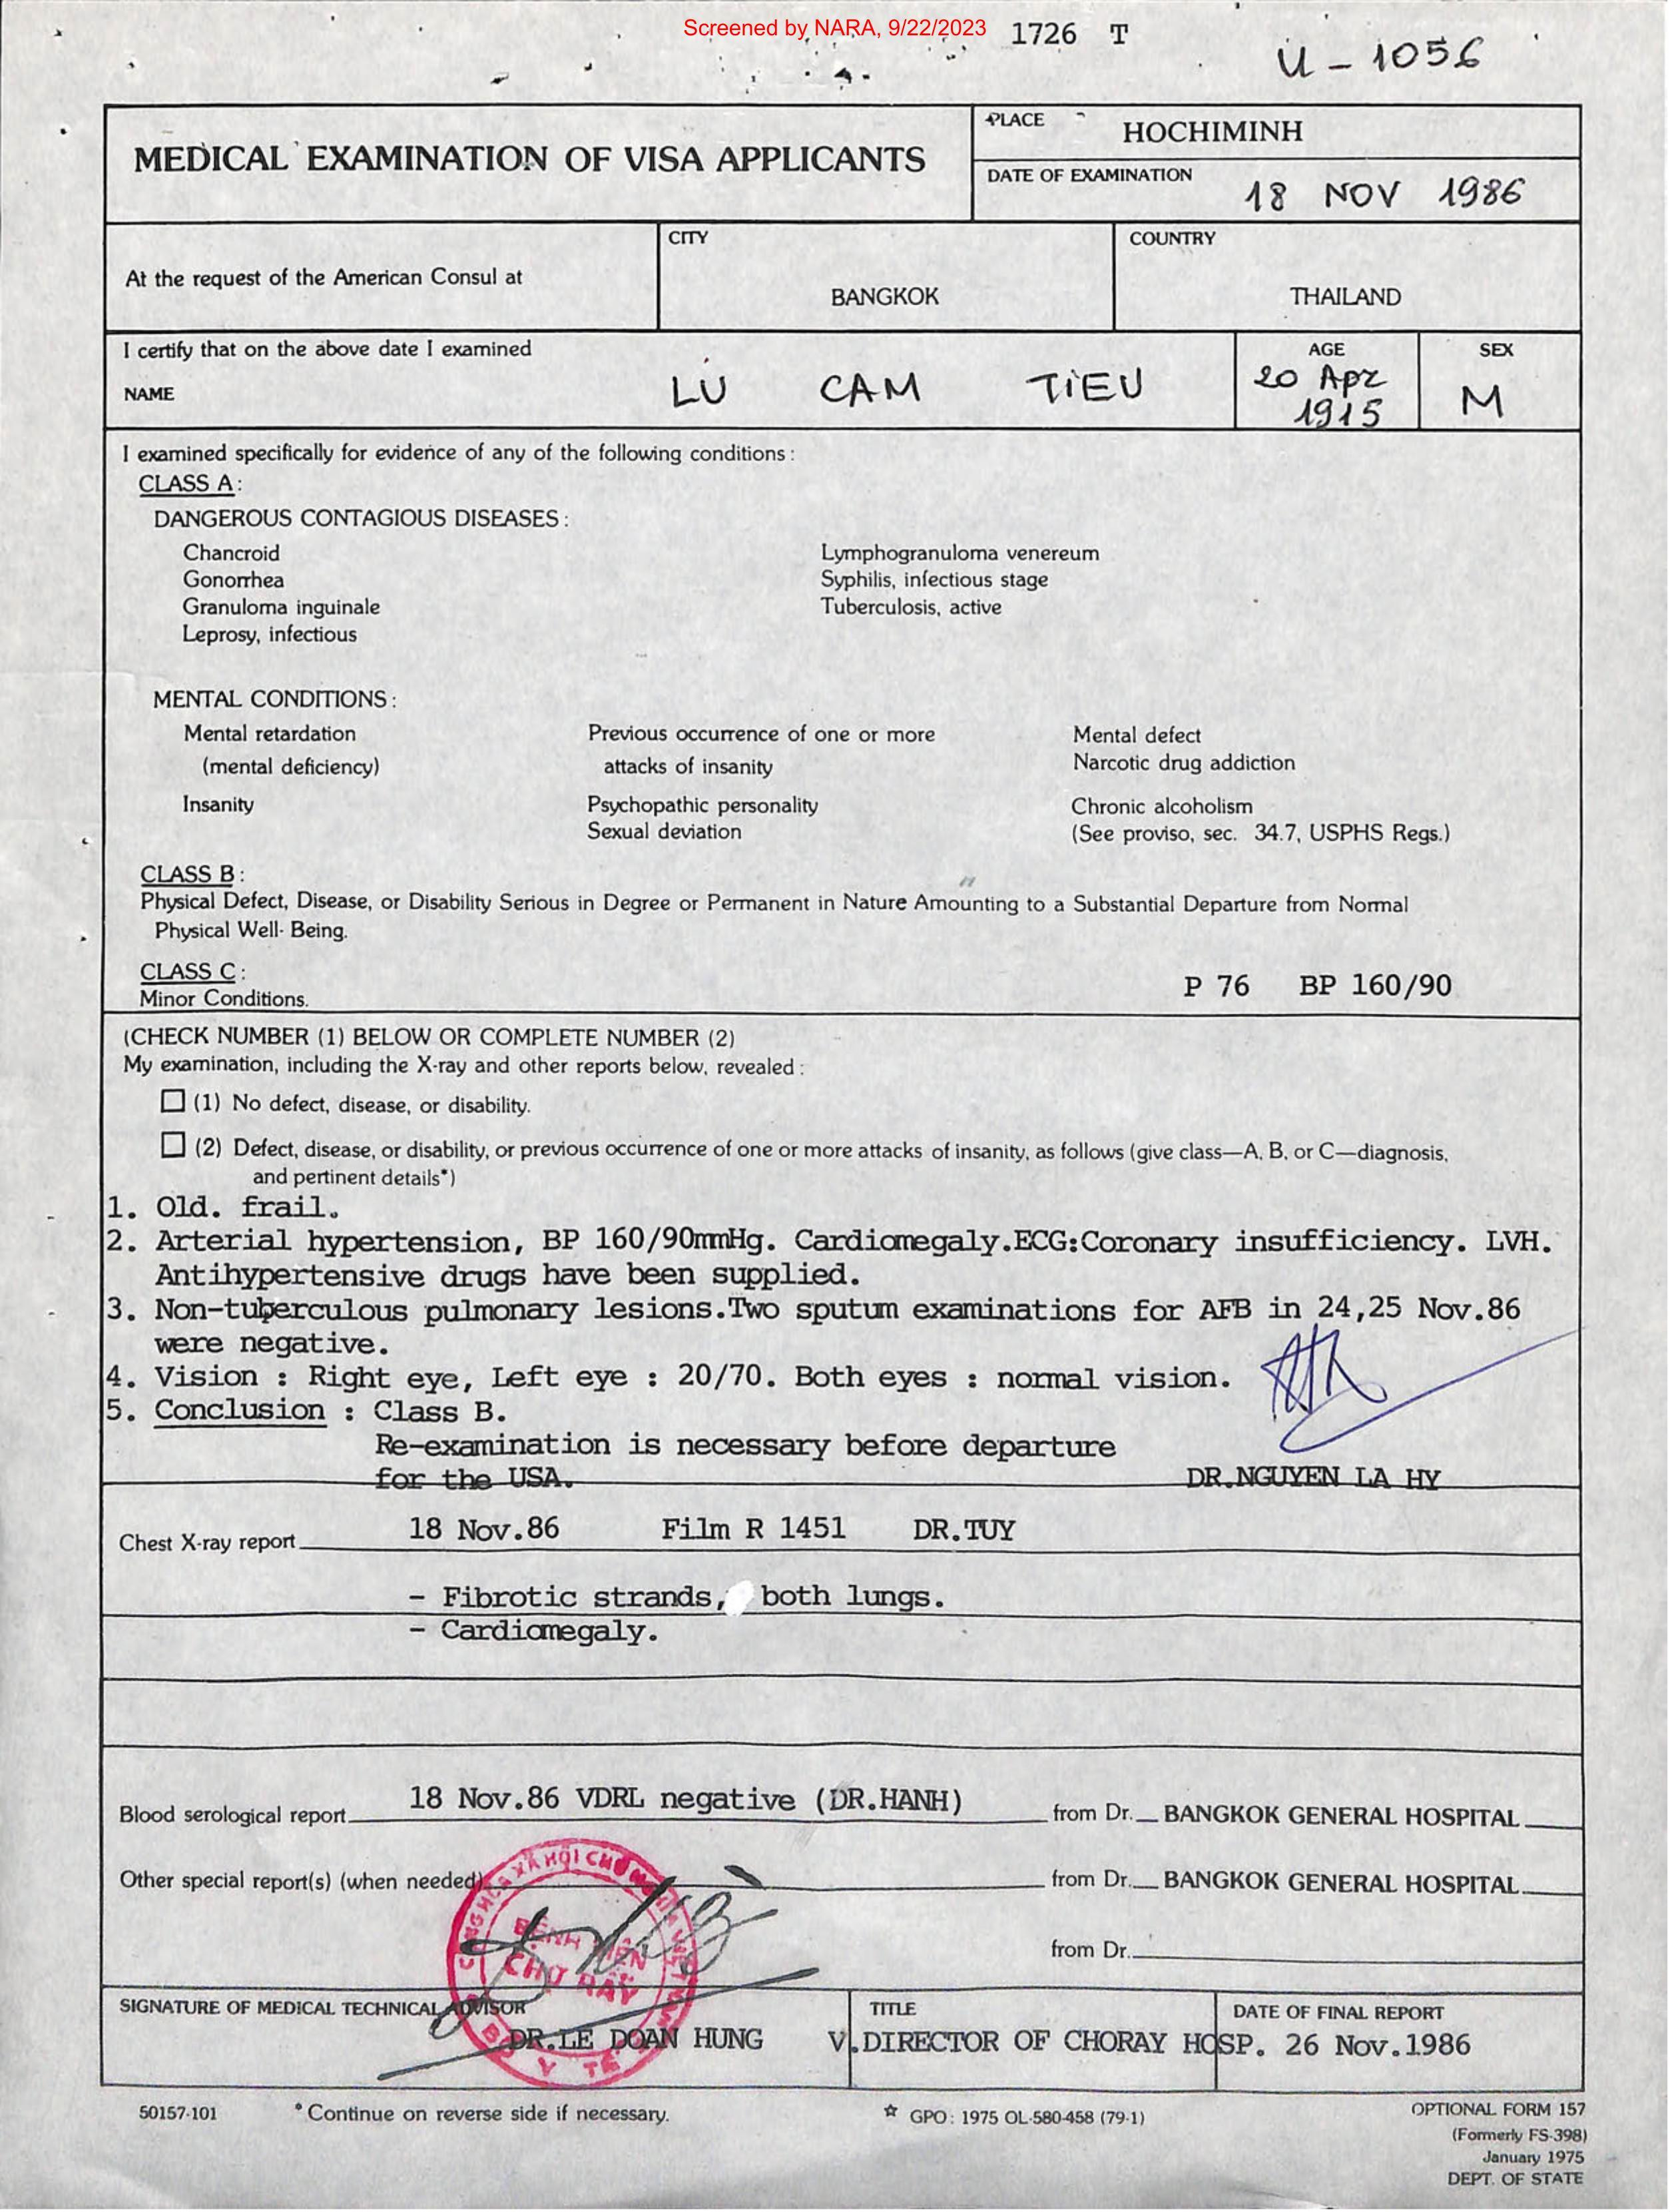 Screened by NARA, 9/22/2023
1726 T
U - 1056
MEDICAL EXAMINATION OF VISA APPLICANTS
PLACE
HOCHIMINH
DATE OF EXAMINATION
18 NOV 1986
At the request of the American Consul at
CITY
BANGKOK
COUNTRY
THAILAND
I certify that on the above date I examined
NAME
LU CAM TIEU
AGE
20 Apr
1915
SEX
M
I examined specifically for evidence of any of the following conditions :
CLASS A :
DANGEROUS CONTAGIOUS DISEASES :
Chancroid
Gonorrhea
Granuloma inguinale
Leprosy, infectious
Lymphogranuloma venereum
Syphilis, infectious stage
Tuberculosis, active
MENTAL CONDITIONS :
Mental retardation
(mental deficiency)
Insanity
Previous occurrence of one or more
attacks of insanity
Psychopathic personality
Sexual deviation
Mental defect
Narcotic drug addiction
Chronic alcoholism
(See proviso, sec. 34.7, USPHS Regs.)
CLASS B :
Physical Defect, Disease, or Disability Serious in Degree or Permanent in Nature Amounting to a Substantial Departure from Normal
Physical Well- Being.
CLASS C :
Minor Conditions.
P 76 BP 160/90
(CHECK NUMBER (1) BELOW OR COMPLETE NUMBER (2)
My examination, including the X-ray and other reports below, revealed :
(1) No defect, disease, or disability.
(2) Defect, disease, or disability, or previous occurrence of one or more attacks of insanity, as follows (give class—A, B, or C—diagnosis,
and pertinent details*)
1. Old. frail.
2. Arterial hypertension, BP 160/90mmHg. Cardiomegaly.ECG:Coronary insufficiency. LVH.
Antihypertensive drugs have been supplied.
3. Non-tuberculous pulmonary lesions.Two sputum examinations for AFB in 24,25 Nov.86
were negative.
4. Vision : Right eye, Left eye : 20/70. Both eyes : normal vision.
5. Conclusion : Class B.
Re-examination is necessary before departure
for the USA.
DR.NGUYEN LA HY
Chest X-ray report
18 Nov.86 Film R 1451 DR.TUY
- Fibrotic strands, both lungs.
- Cardiomegaly.
Blood serological report
18 Nov.86 VDRL negative (DR.HANH)
from Dr. BANGKOK GENERAL HOSPITAL
Other special report(s) (when needed)
from Dr. BANGKOK GENERAL HOSPITAL
from Dr.
BỆNH VIỆN
CHỢ RẪY
BỘ Y TẾ
SIGNATURE OF MEDICAL TECHNICAL ADVISOR
DR.LE DOAN HUNG
TITLE
V.DIRECTOR OF CHORAY HOSP.
DATE OF FINAL REPORT
26 Nov.1986
50157-101
* Continue on reverse side if necessary.
☆ GPO : 1975 OL-580-458 (79-1)
OPTIONAL FORM 157
(Formerly FS-398)
January 1975
DEPT. OF STATE